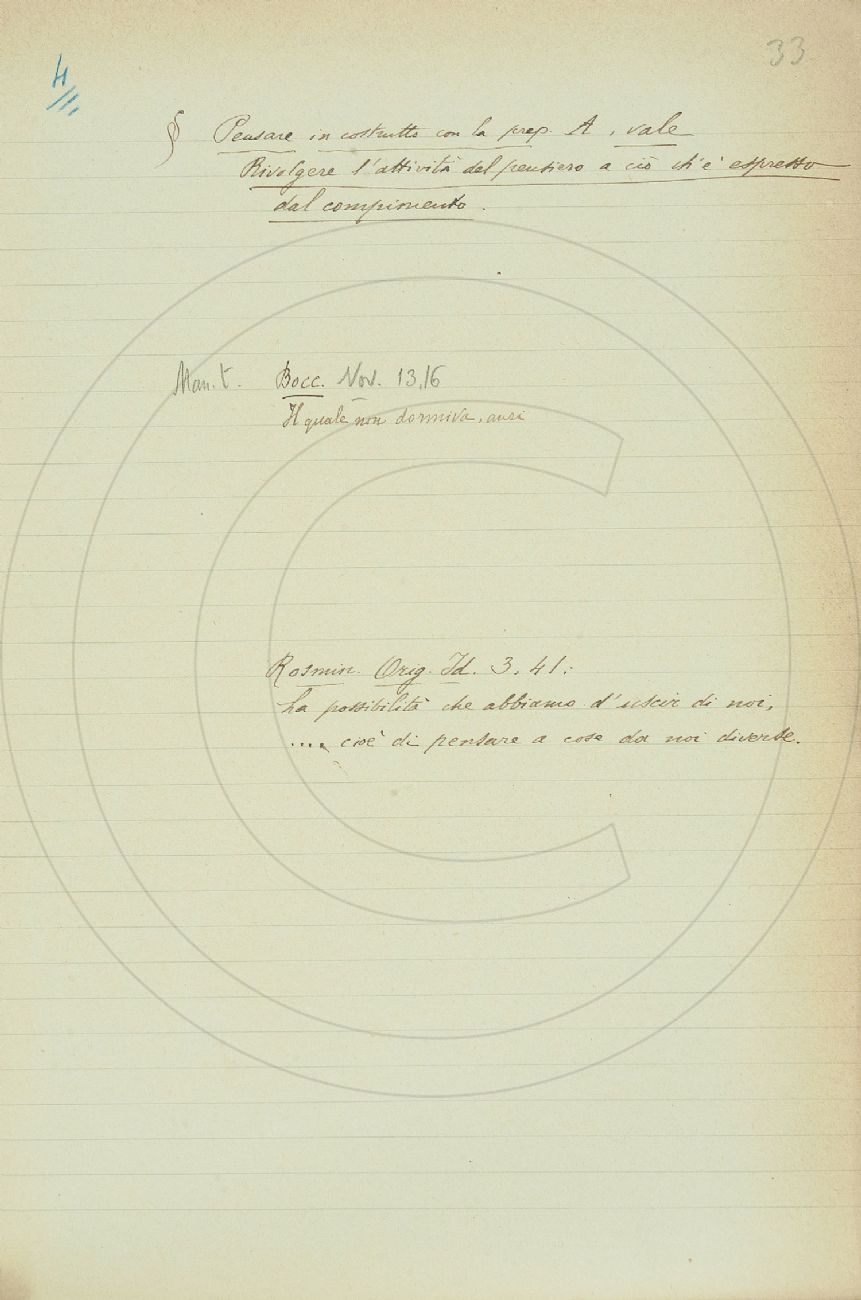 33
4
§ Pensare in costrutto con la prep. A, vale
Rivolgere l'attività del pensiero a ciò ch'è espresso
dal compimento.
Man. t. Bocc. Nov. 13,16
Il quale non dormiva, anzi
Rosmin. Orig. Id. 3. 41:
La possibilità che abbiamo d'uscir di noi,
.... cioè di pensare a cose da noi diverse.